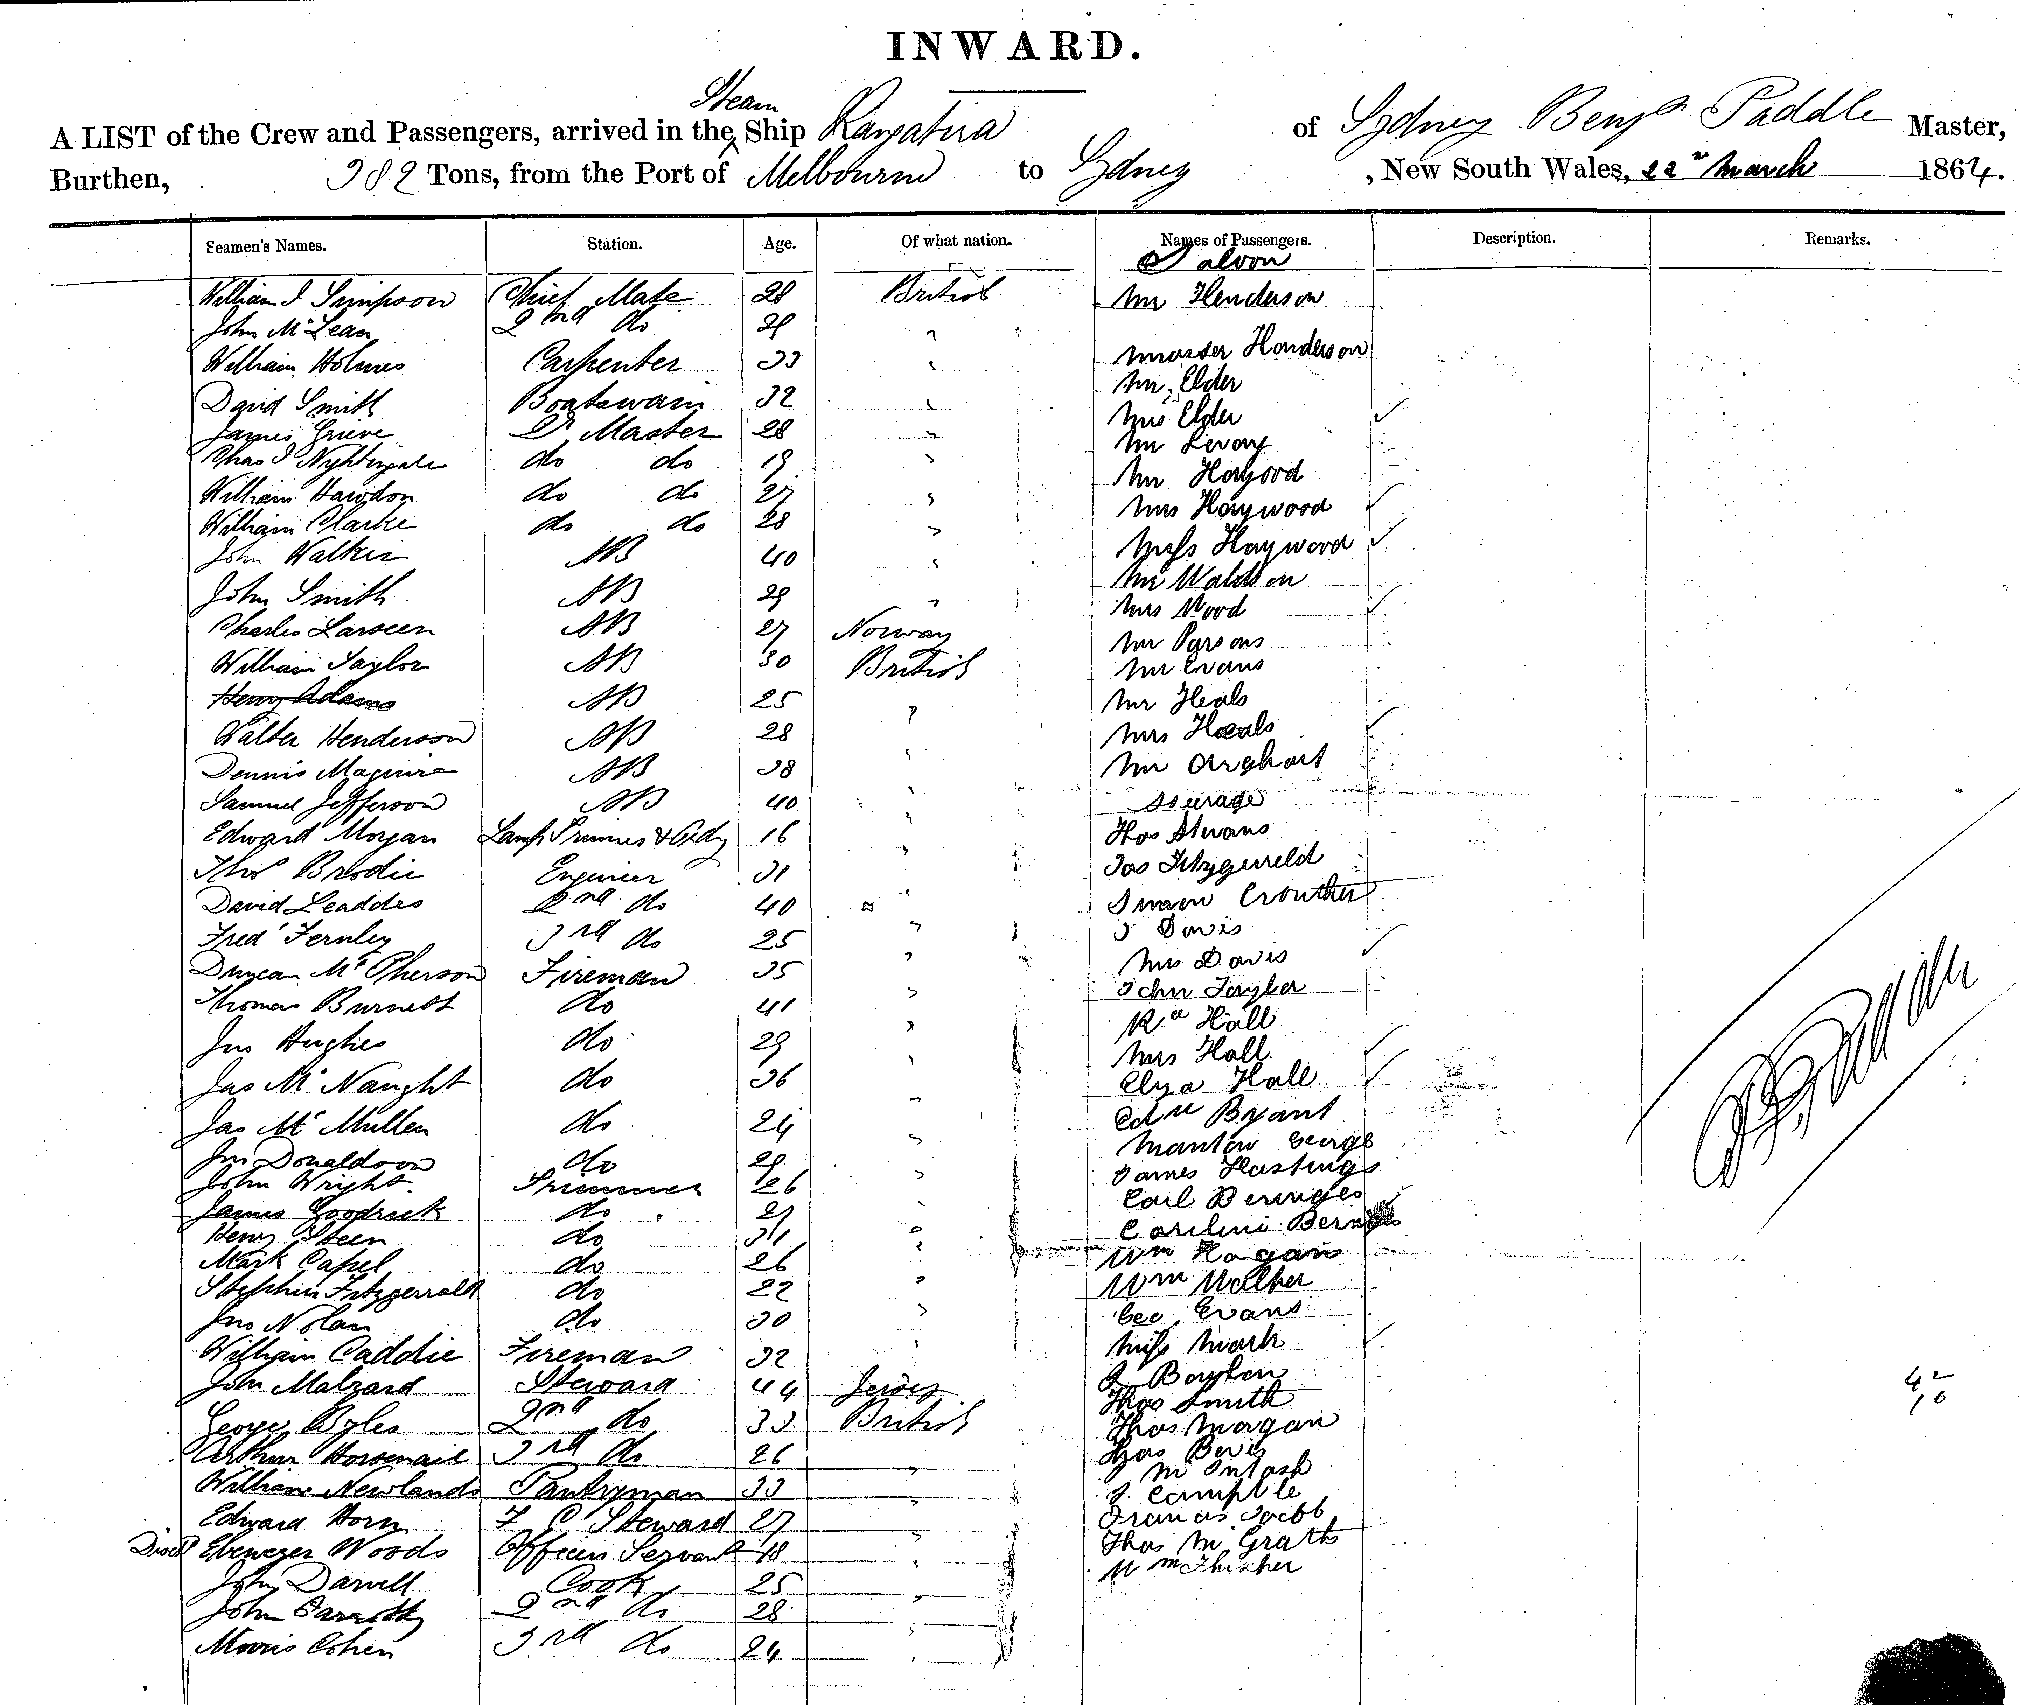 INWARD.
A LIST of the Crew and Passengers, arrived in the Steam Ship Rangatira of Sydney Benjn Paddle Master,
Burthen, 382 Tons, from the Port of Melbourne to Sydney , New South Wales, 22nd March 1864.
Seamen's Names. Station. Age. Of what nation. Names of Passengers. Description. Remarks.
Saloon
William I Simpson Chief Mate 28 British Mr Henderson
John McLean 2nd do
William Holmes Carpenter 33 Master Henderson
David Smith Boatswain 32 Mr Elder
James Grieve Master 28 Mrs Elder
Chas I Nightingale do do 19 Mr Levy
William Hawdon do do 27 Mr Haygood
William Clarke do do 28 Mrs Haywood
John Walker AB 40 Miss Haywood
John Smith AB 29 Mr Waldron
Charles Larseen AB 27 Norway Mrs Wood
William Taylor AB 30 British Mr Parsons
Henry Adams AB 25 Mr Evans
Walter Henderson AB 28 Mr Heals
Dennis Maguire AB 38 Mrs Heals
Samuel Jefferson AB 40 Mr
Edward Morgan Lamp Trimmer & 16 Steerage
Thos Brodie Engineer 31 Thos
David Leaddes 2nd do 40 Jas Fitzgerreld
Fredk Fernley 3rd do 25 Crouther
Duncan McPherson Fireman 35 J Davis
Thomas Burnett do 41 Mrs Davis
Jno Hughes do 29 John Taylor
Jas McNaught do 36 Rd Hall
Jas McMullen do 24 Mrs Hall
Jno Donaldson do 29 Elyza Hall
John Wright Trimmer 26 Edw Bryant
James Goodrick do 27 George
Henry Steen do 31 James Hastings
Mark Capel do 26 Carl
Stephen Fitzgerrald do 22 Caroline
Jno Nolan do 30 Wm Hogan
William Caddie Fireman 32 Wm Walker
John Malzard Steward 44 Jersey Geo Evans
George Byles 2nd do 33 British Miss Mark
Arthur Horsenail 3rd do 26 Boyten
William Newlands Pantryman 33 Thos Smith
Edward Horn F C Steward 27 Thos Morgan
Disd Ebenezer Woods Officers Servant 18 Thos
John Darvell Cook 25 J McIntosh
John 2nd do 28 J
Morris Cohen 3rd do 24 Francis
Thos McGrath
Wm
42
10